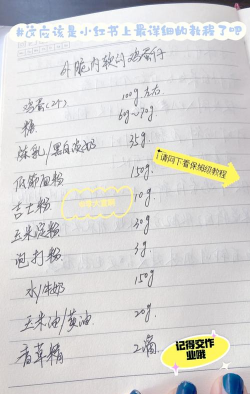 #这应该是小红书上最详细的教程了吧
外脆内软的鸡蛋仔
鸡蛋(2个) 100g左右
糖 60g~70g
炼乳/黑白淡奶 35g
低筋面粉 150g
请向下看保姆级教程
吉士粉 10g
玉米淀粉 30g
泡打粉 3g
水/牛奶 150g
玉米油/黄油 20g
香草精 2滴
记得交作
业哦